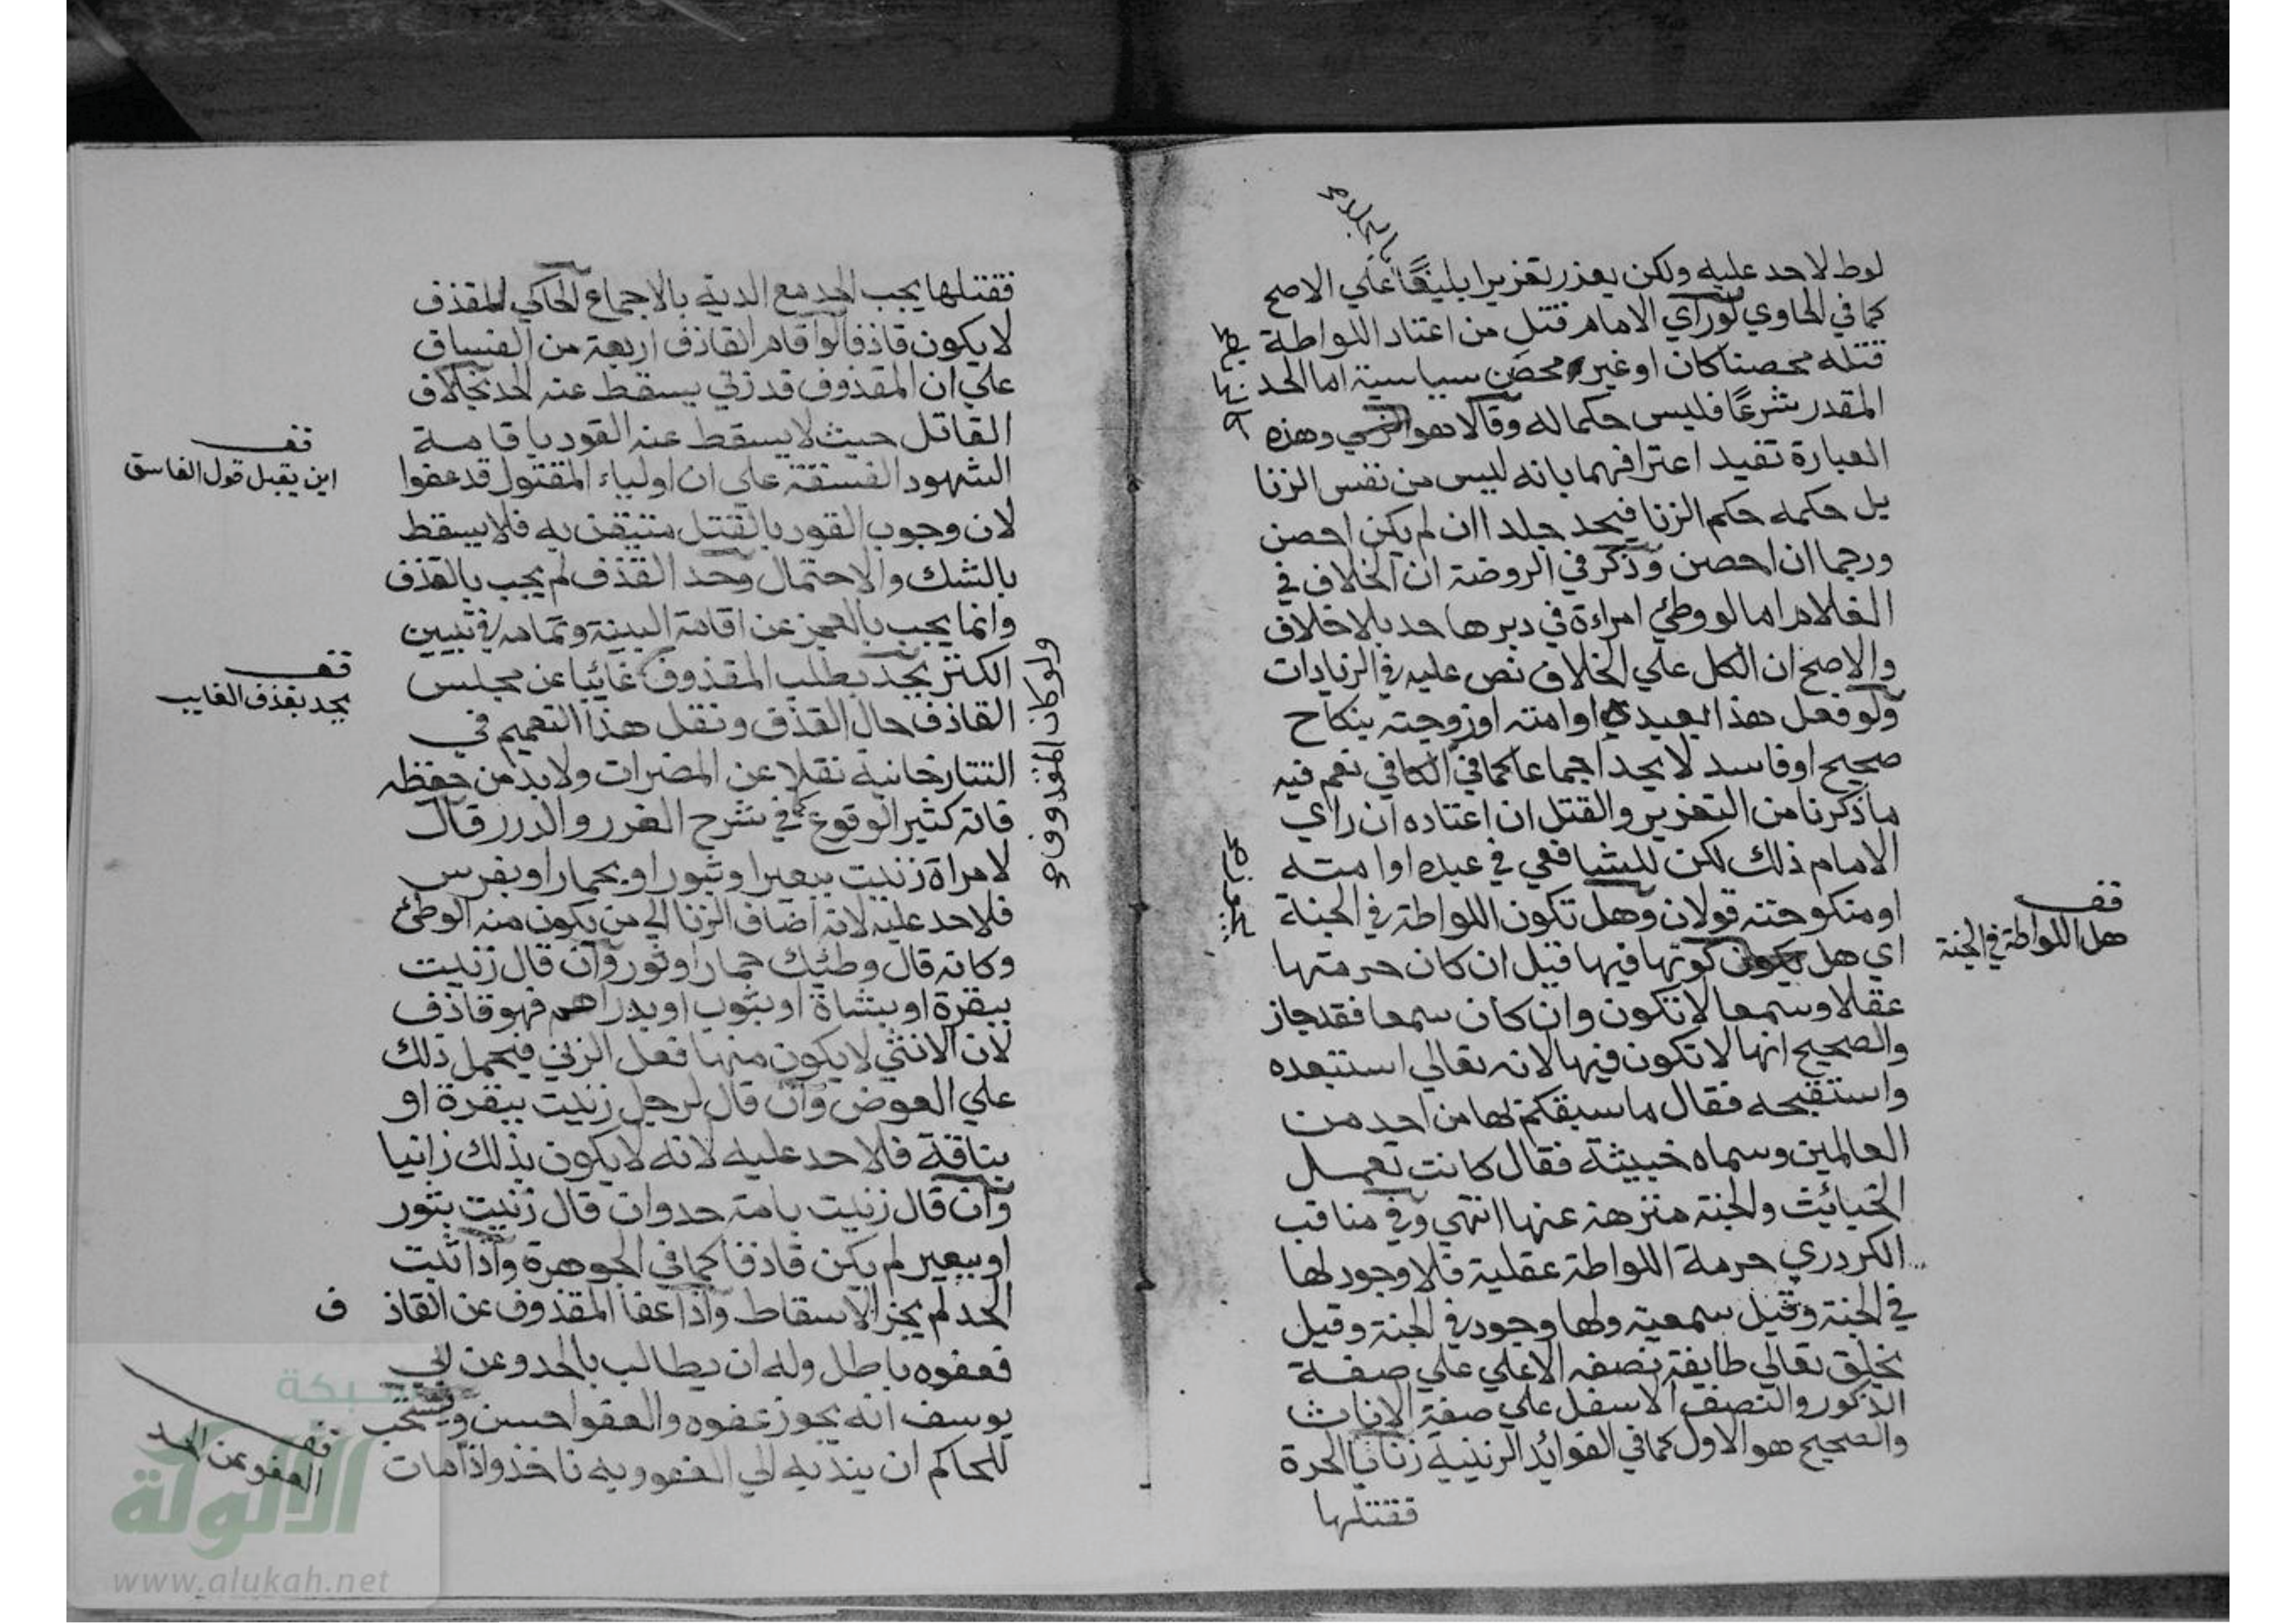 لوط لاحد عليه ولكن يعذر تعزيرا بليغًا علي الاصح
كما في الحاوي لو راي الامام قتل من اعتاد اللواطة
قتله محصنا كان او غير محصن سياسية اما الحد
المقدر شرعًا فليس حكما له وقالا هو وهذه
العبارة تفيد اعترافهما بانه ليس من نفس الزنا
بل حكمه حكم الزنا فيحد جلدا ان لم يكن احصن
ورجما ان احصن وذكر في الروضة ان الخلاف في
الغلام اما لو وطئ امراءة في دبرها حد بلا خلاف
والاصح ان الكل علي الخلاف نص عليه في الزيادات
ولو فعل هذا بعبده او امته او زوجته بنكاح
صحيح او فاسد لا يحد اجماعا كما في الكافي نعم فيه
ما ذكرنا من التعزير والقتل ان اعتاده ان راي
الامام ذلك لكن للشافعي في عبده او امته
او منكوحته قولان وهل تكون اللواطة في الجنة
اي هل كونها فيها قيل ان كان حرمتها
عقلا وسمعا لا تكون وان كان سمعا فقد جاز
والصحيح انها لا تكون فيها لانه تعالي استبعده
واستقبحه فقال ما سبقكم بها من احد من
العالمين وسماه خبيثة فقال كانت تعمل
الخبائيث والجنة منزهة عنها انتهي وفي مناقب
الكردري حرمة اللواطة عقلية فلا وجود لها
في الجنة وقيل سمعية ولها وجود في الجنة وقيل
يخلق تعالي طايفة نصفه الاعلي علي صفة
الذكور والنصف الاسفل علي صفة الاناث
والصحيح هو الاول كما في الفوائد الزينية زنا بالحرة
فقتلها
قف
هل اللواطة في الجنة
فقتلها يجب الحد مع الدية بالاجماع الحاكي للقذف
لا يكون قاذفا لو اقام القاذف اربعة من الفساق
علي ان المقذوف قد زني يسقط عنه الحد بخلاف
القاتل حيث لا يسقط عنه القود باقامة
الشهود الفسقة علي ان اولياء المقتول قد عفوا
لان وجوب القود بالقتل متيقن به فلا يسقط
بالشك والاحتمال وحد القذف لم يجب بالقذف
وانما يجب بالعجز عن اقامة البينة وتمامه في تبيين
الكنز يحد بطلب المقذوف غائبا عن مجلس
القاذف حال القذف ونقل هذا التعميم في
التتارخانية نقلا عن المضمرات ولا بد من حفظه
فانه كثير الوقوع كما في شرح الغرر والدرر قال
لامراة زنيت ببعير او بثور او بحمار او بفرس
فلا حد عليه لانه اضاف الزنا الي من يكون منه الوطئ
وكانه قال وطئك حمار او ثور وان قال زنيت
ببقرة او بشاة او بثوب او بدراهم فهو قاذف
لان الانثي لا يكون منها فعل الزني فيحمل ذلك
علي العوض وان قال لرجل زنيت ببقرة او
بناقة فلا حد عليه لانه لا يكون بذلك زانيا
وان قال زنيت بامة حد وان قال زنيت بثور
او ببعير لم يكن قاذفا كما في الجوهرة واذا ثبت
الحد لم يجز الاسقاط واذا عفا المقذوف عن القاذ ف
فعفوه باطل وله ان يطالب بالحد وعن ابي
يوسف انه يجوز عفوه والعفو احسن ويستحب
للحاكم ان يندبه الي العفو وبه ناخذ واذا مات
ولو كان المقذوف
قف
اين يقبل قول الفاسق
قف
يحد بقذف الغايب
قف
العفو عن الحد
شبكة
الألوكة
www.alukah.net